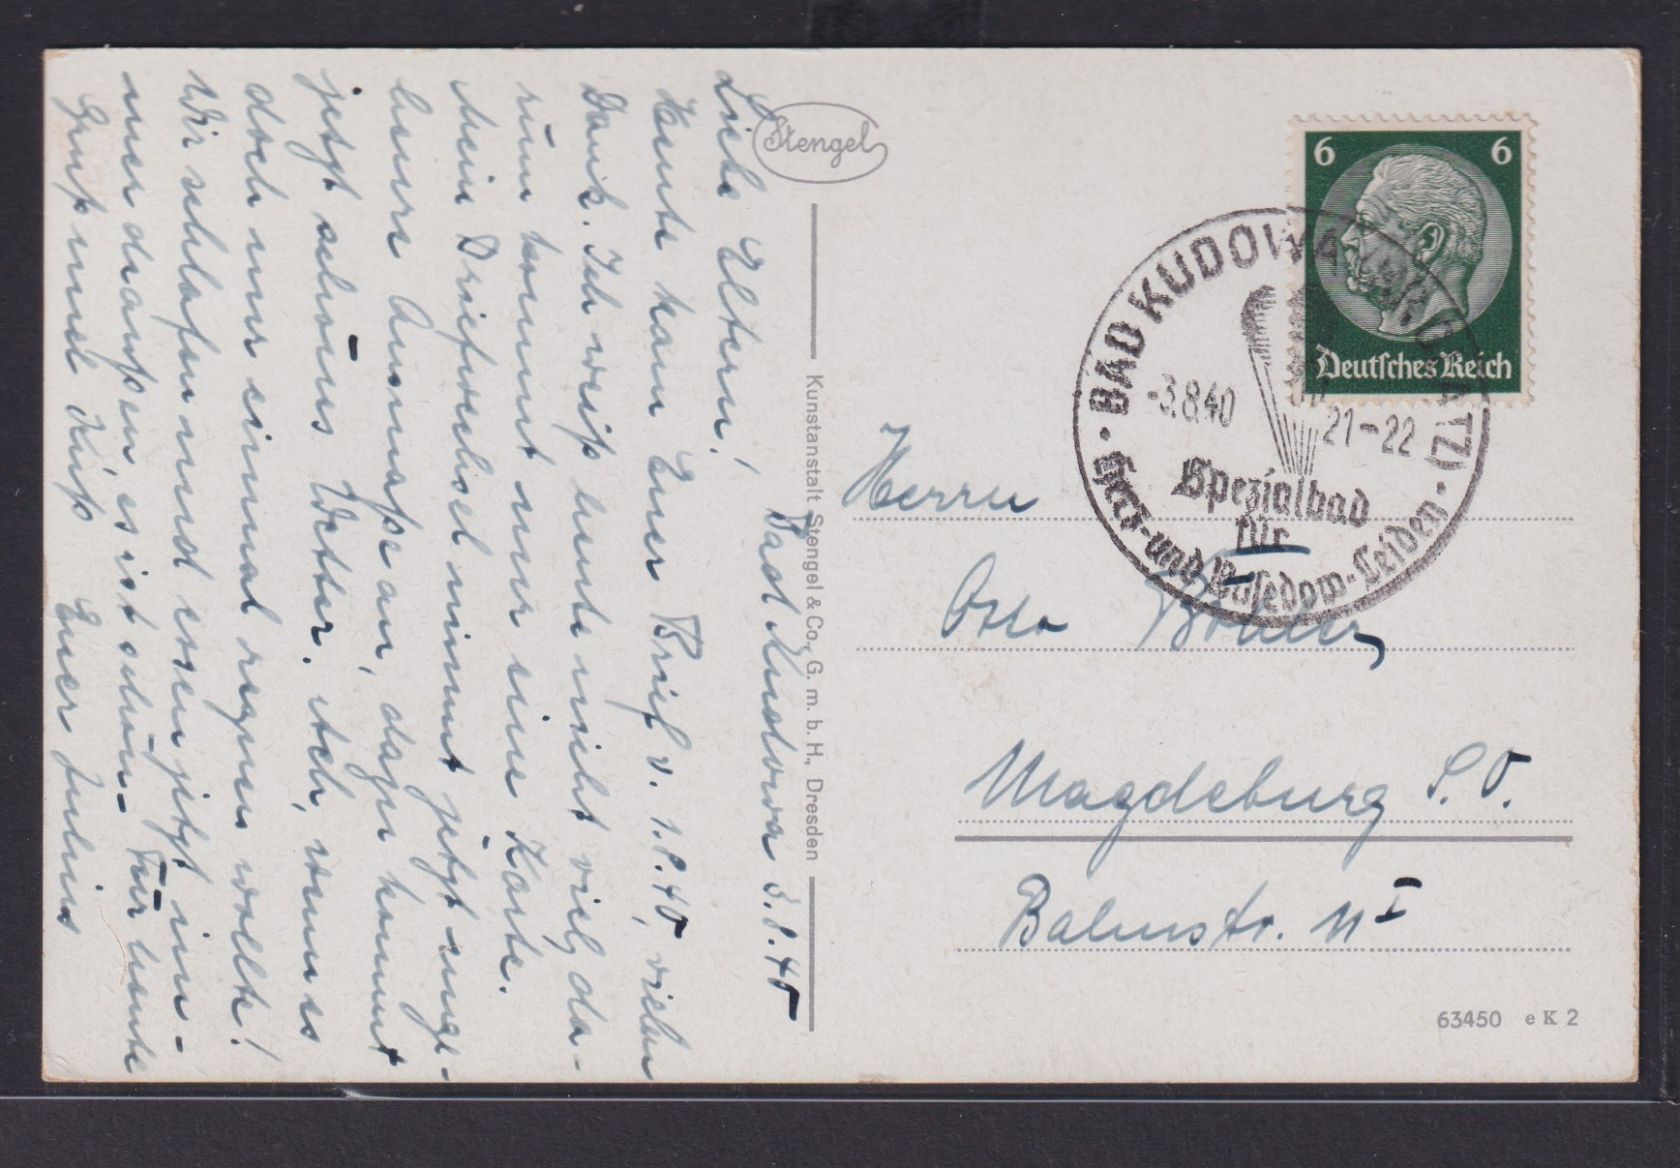 Stengel
Bad Kudowa 3.8.40
Liebe Eltern!
Heute kam Euer Brief v. 1.8.40, vielen
Dank. Ich weiß heute nicht viel, da-
rum kommt nur eine Karte.
Mein Briefwechsel nimmt jetzt unge-
heure Ausmaße an, dazu kommt
jetzt schönes Wetter. Ach, wenn es
doch nur einmal regnen wollte!
Wir schlafen und essen jetzt im-
mer draußen, es ist schön. – Für heute
Gruß und Kuß Euer Julius
Kunstanstalt Stengel & Co., G. m. b. H., Dresden
6 6
Deutsches Reich
BAD KUDOWA
-3.8.40 21-22
Spezialbad
für
Herz- und Basedow-Leiden
Herrn
Otto
Magdeburg S. O.
Bahnstr. 11 I
63450 e K 2